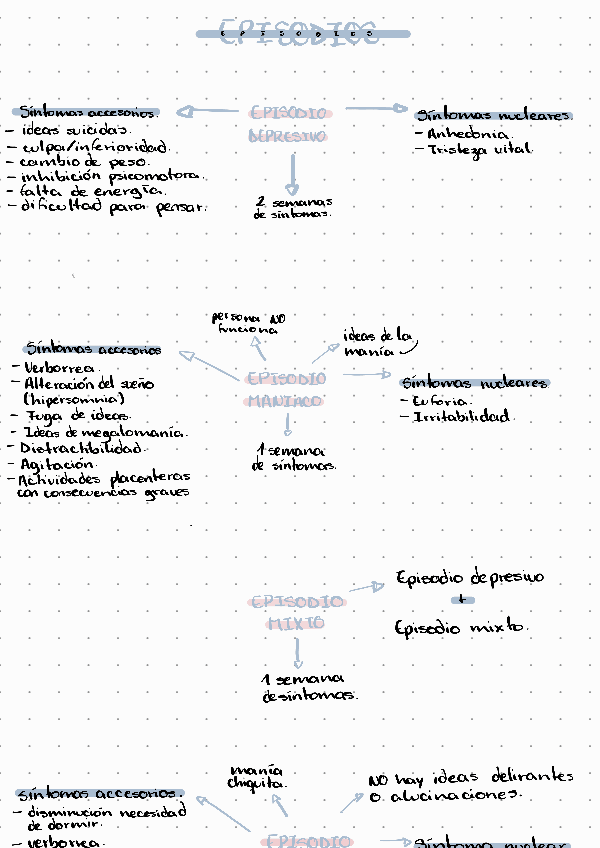 EPISODIOS
EPISODIOS
EPISODIO
DEPRESIVO
Síntomas accesorios.
- ideas suicidas.
- culpa/inferioridad.
- cambio de peso.
- inhibición psicomotora.
- falta de energía.
- dificultad para pensar.
Síntomas nucleares
- Anhedonia.
- Tristeza vital.
2 semanas
de síntomas.
persona NO
funciona
ideas de la
manía
EPISODIO
MANIACO
Síntomas accesorios
- Verborrea.
- Alteración del sueño
(hipersomnio)
- Fuga de ideas.
- Ideas de megalomanía.
- Distractibilidad.
- Agitación.
- Actividades placenteras
con consecuencias graves
Síntomas nucleares
- Euforia.
- Irritabilidad.
1 semana
de síntomas.
EPISODIO
MIXTO
Episodio depresivo
+
Episodio mixto.
1 semana
de síntomas.
manía
chiquita.
NO hay ideas delirantes
o alucinaciones.
síntomas accesorios.
- disminución necesidad
de dormir.
- verborrea.
EPISODIO
Síntoma nuclear